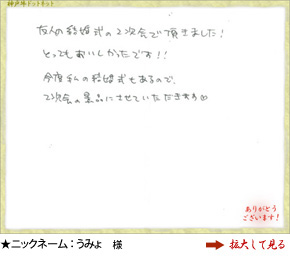 神戸牛ドットネット
友人の結婚式の2次会で頂きました!
とってもおいしかったです!!
今度私の結婚式もあるので、
2次会の景品にさせていただきます♡
ありがとう
ございます!
★ニックネーム:うみょ 様
拡大して見る